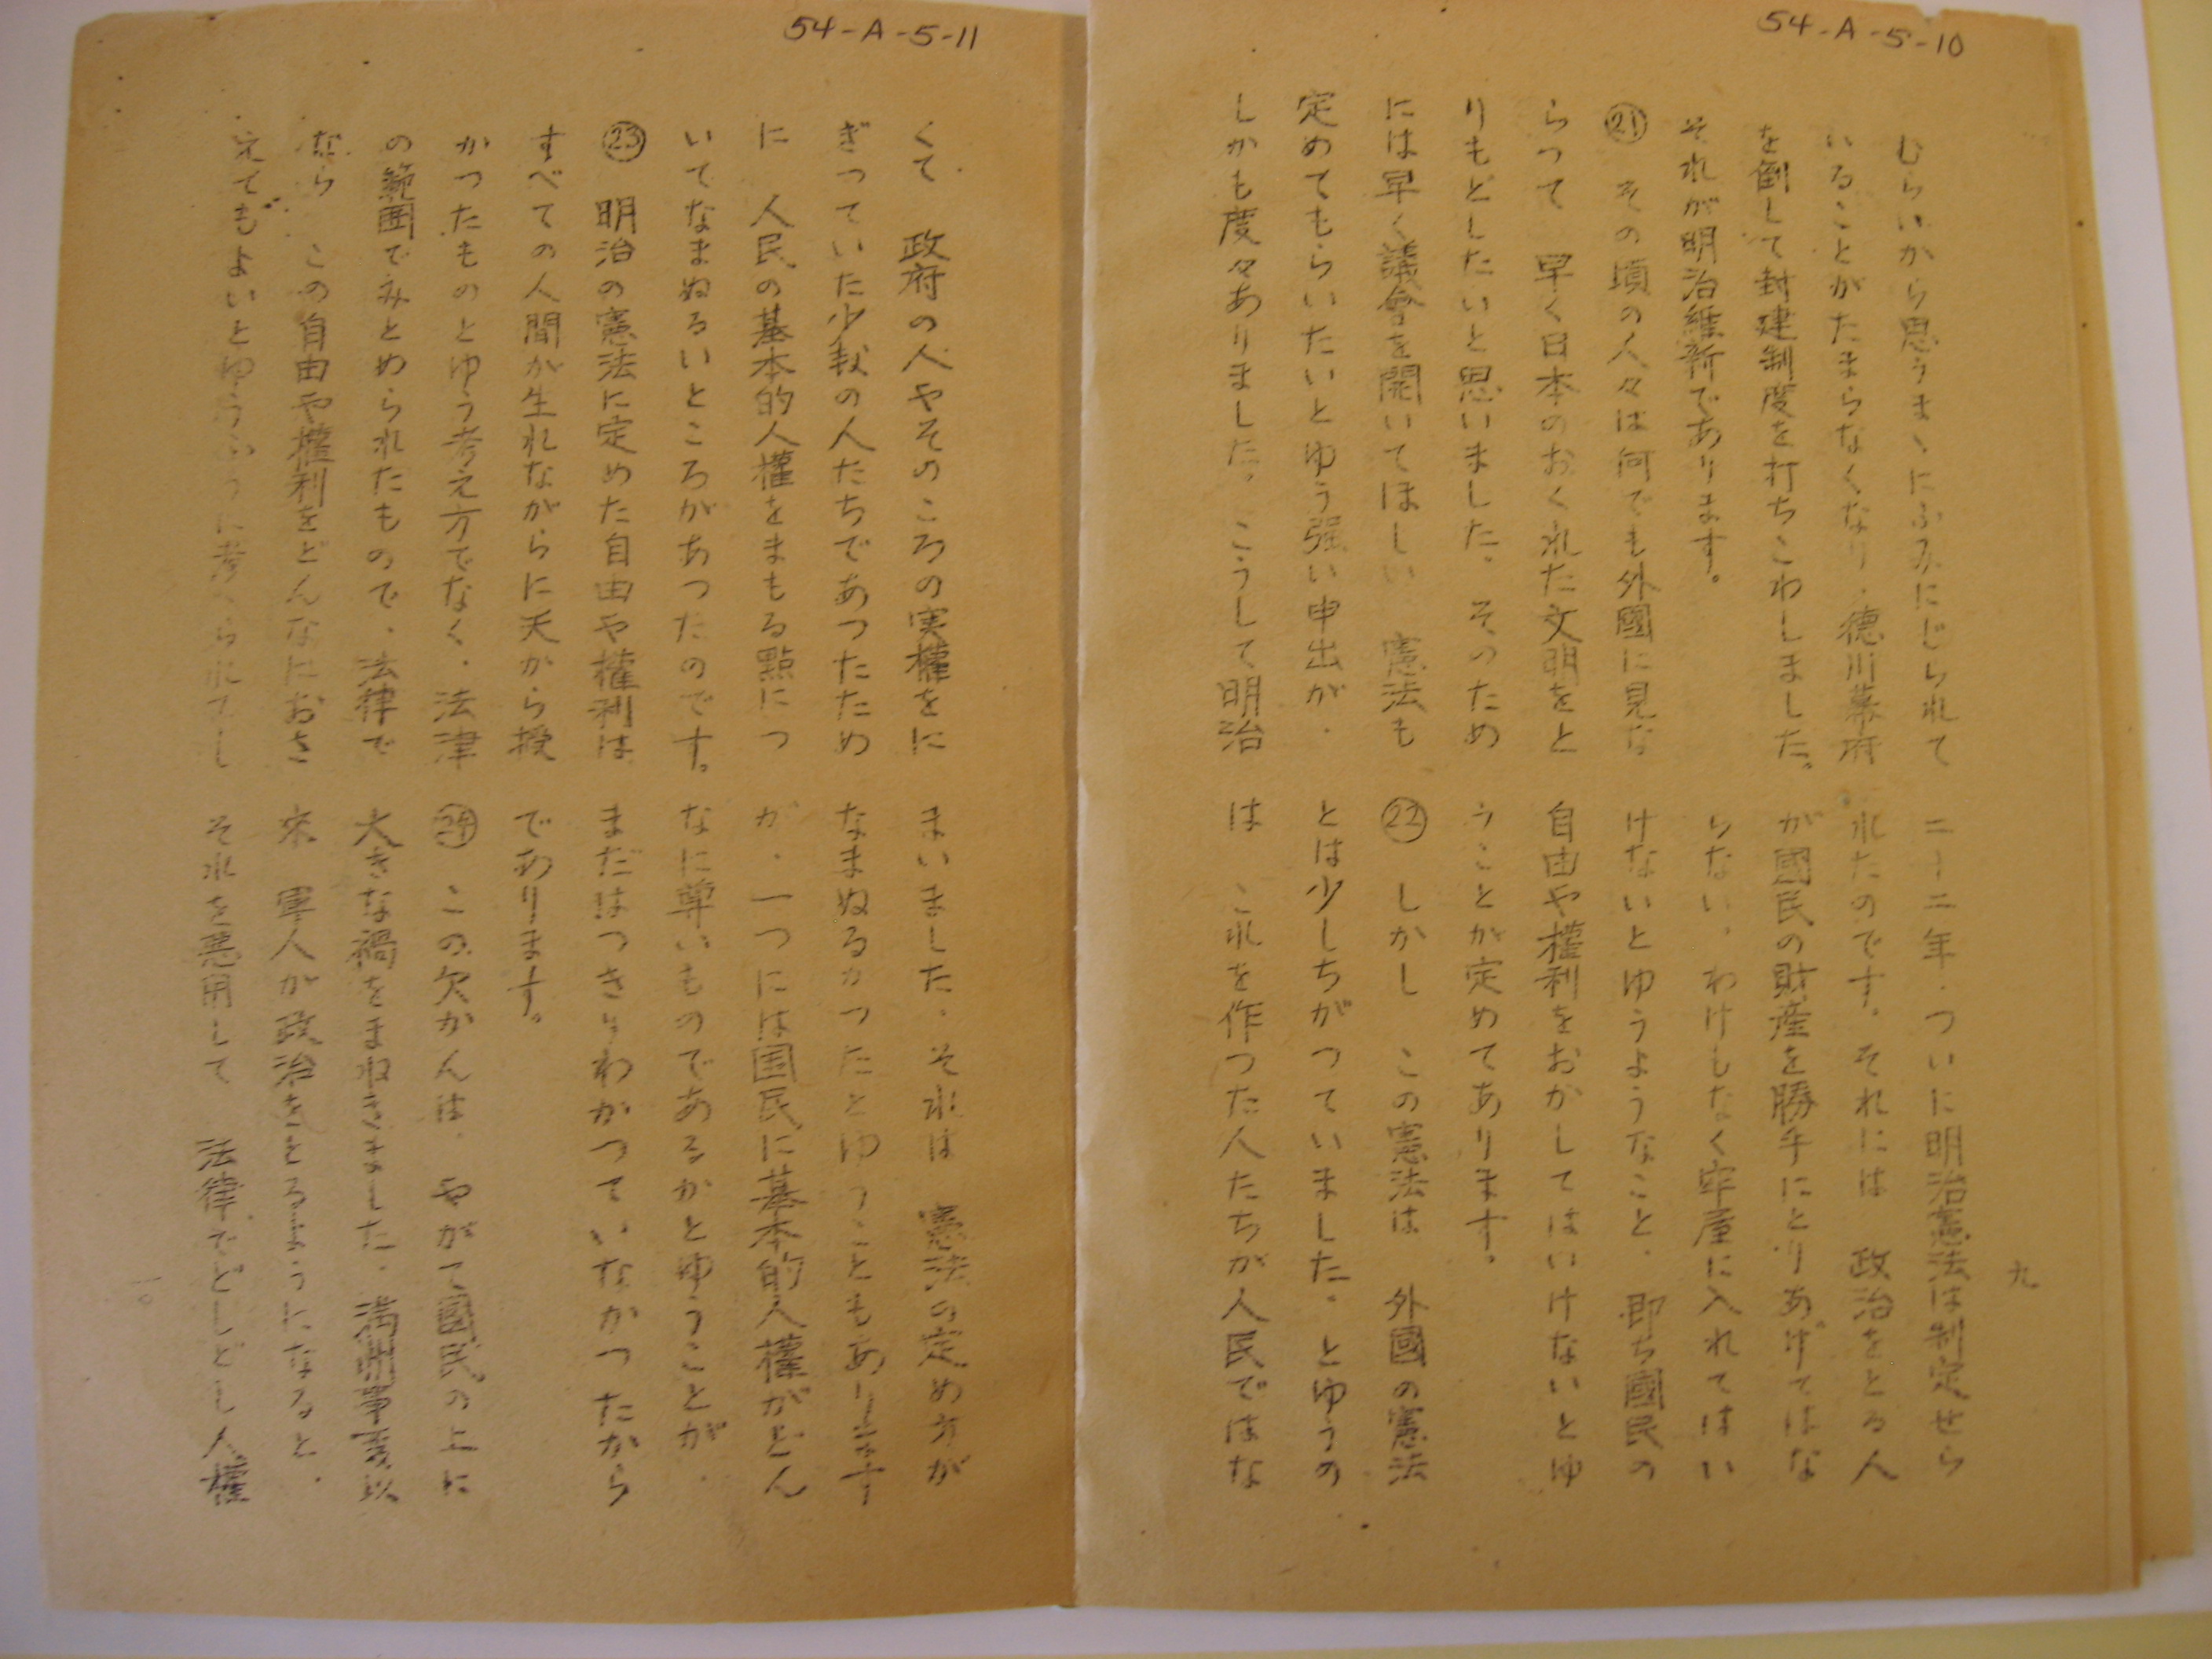 54-A-5-10
むらいから思うまゝにふみにじられて
いることがたまらなくなり、德川幕府
を倒して封建制度を打ちこわしました。
それが明治維新であります。
㉑ その頃の人々は何でも外國に見な
らつて 早く日本のおくれた文明をと
りもどしたいと思いました。そのため
には早く議會を開いてほしい 憲法も
定めてもらいたいとゆう强い申出が、
しかも度々ありました。こうして明治
二十二年、ついに明治憲法は制定せら
れたのです。それには 政治をとる人
が國民の財産を勝手にとりあげてはな
らない、わけもなく牢屋に入れてはい
けないとゆうようなこと、即ち國民の
自由や權利をおかしてはいけないとゆ
うことが定めてあります。
㉒ しかし この憲法は 外國の憲法
とは少しちがつていました。とゆうの
は これを作つた人たちが人民ではな
九
54-A-5-11
くて 政府の人やそのころの実權をに
ぎつていた少数の人たちであつたため
に 人民の基本的人權をまもる點につ
いてなまぬるいところがあつたのです。
㉓ 明治の憲法に定めた自由や權利は
すべての人間が生れながらに天から授
かつたものとゆう考え方でなく、法津
の範囲でみとめられたもので、法律で
なら この自由や權利をどんなにおさ
えてもよいとゆうふうに考えられてし
まいました。それは 憲法の定め方が
なまぬるかつたとゆうこともあります
が、一つには国民に基本的人權がどん
なに尊いものであるかとゆうことが、
まだはつきりわかつていなかつたから
であります。
㉔ この欠かんは、やがて國民の上に
大きな禍をまねきました。満洲事変以
來 軍人が政治をとるようになると、
それを悪用して 法律でどしどし人權
一〇